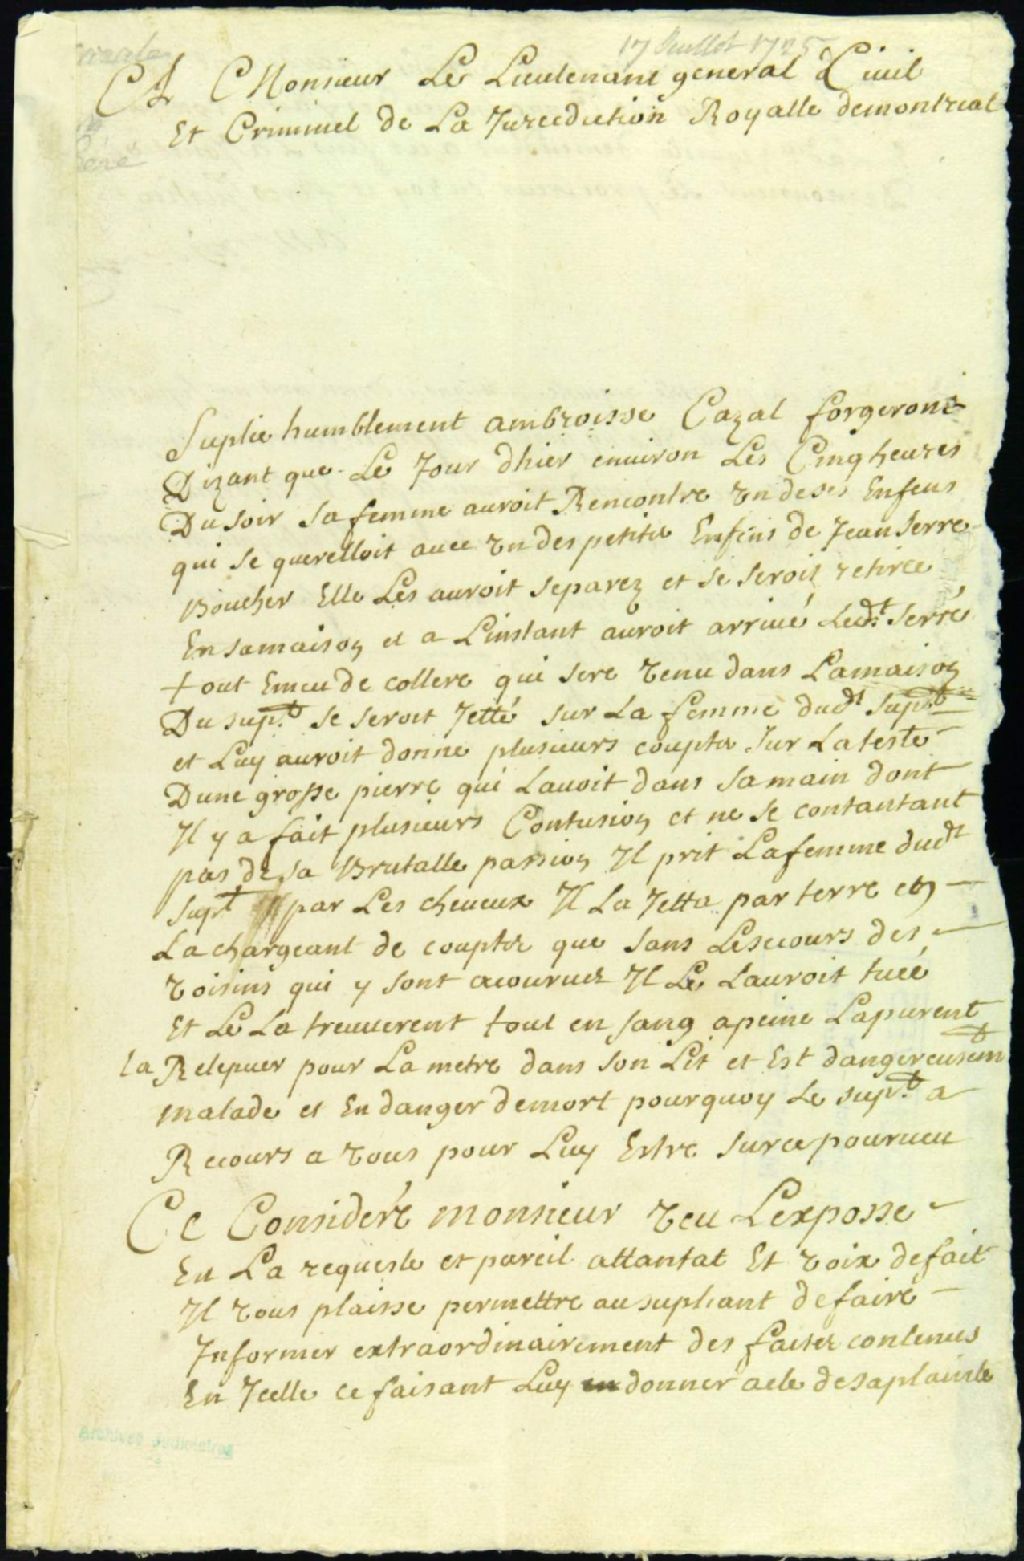 17 Juillet 1725
A Monsieur Le Lieutenant general Ciuil
Et Criminel de La Jurediction Royalle demontreal
Suplie humblement ambroisse Cazal forgeront
Dizant que Le Jour dhier enuiron Les Cinq heures
Du soir sa femme auroit Rencontre un de ses Enfens
qui se querelloit auec un des petits Enfens de Jean serre
Boucher Elle Les auroit separez et se seroit retirée
En samaison et a Linstant auroit arriué Ledt serré
tout Emeu de collere qui sere venu dans Lamaison
Du supt se seroit Jetté sur La femme dudt supt
et Luy auroit donne plusieurs coupts sur La teste
Dune grosse pierre qui Lauoit dans samain dont
Il y a fait plusieurs Contusion et ne se contantant
pas de sa Brutalle passion Il prit Lafemme dudt
supt par Les cheueux Il La Jetta par terre en
La chargeant de coupts que sans Lesecours des
voisins qui y sont acouruez Il Le Lauroit tuée
Et Le La treuuerent tout en sang apeine Lapurent
la Releuer pour La metre dans son Lit et Est dangereusem
malade et En danger demort pourquoy Le supt a
Recours a vous pour Luy Estre surce pourueu
Ce Consideré monsieur veu Lexposse
En La requeste et pareil attantat Et voix defait
Il vous plaisse permettre au supliant defaire
Informer extraordinairement des faits contenus
En Jcelle ce faisant Luy en donner acte desaplainte
Archives Judiciaires